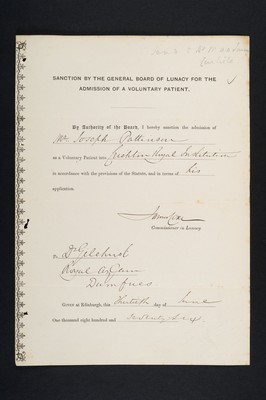 SANCTION BY THE GENERAL BOARD OF LUNACY FOR THE
ADMISSION OF A VOLUNTARY PATIENT.
By Authority of the Board, I hereby sanction the admission of
Mr Joseph Pattinson
as a Voluntary Patient into Crichton Royal Institution
in accordance with the provisions of the Statute, and in terms of his
application.
James Coxe
Commissioner in Lunacy.
To Dr Gilchrist
Royal Asylum
Dumfries
GIVEN at Edinburgh, this Thirtieth day of June
One thousand eight hundred and seventy six.